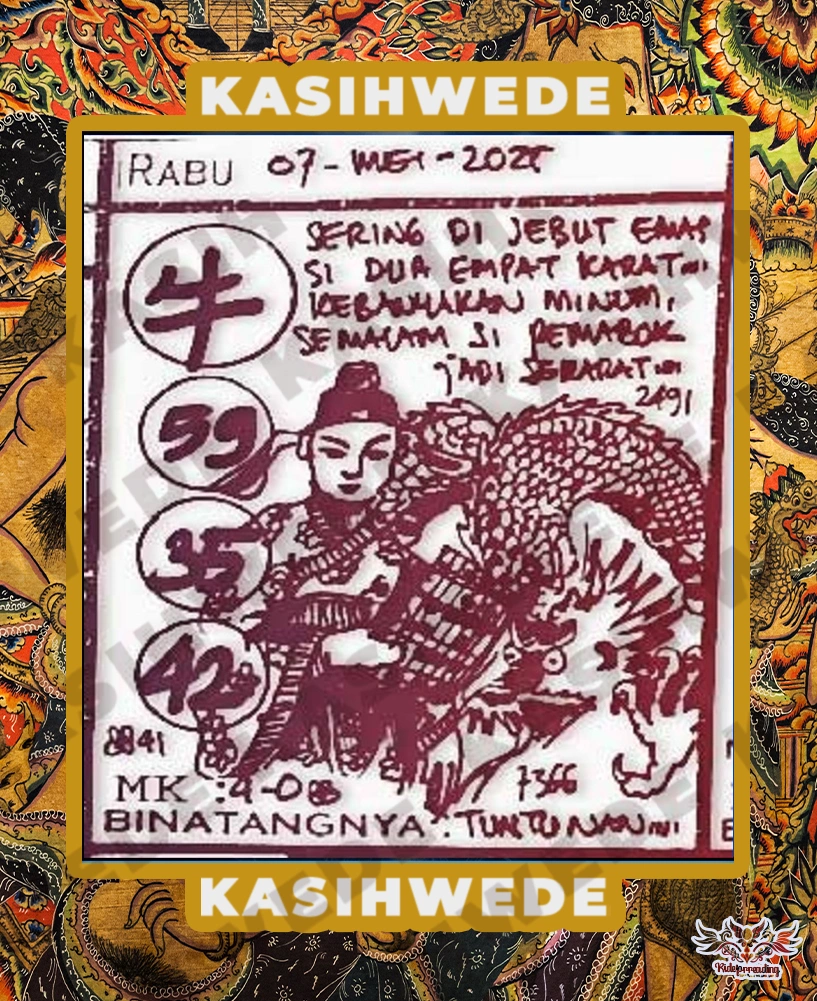 KASIHWEDE
RABU 07-MEI-2025
牛
SERING DI JEBUT EMAS
SI DUA EMPAT KARAT
KEBANYAKAN MINUM,
SEMALAM SI PEMABOK
jADI SEKARAT
2491
59
35
42
8841
MK : 4-0
7366
BINATANGNYA : TUNTUNAN
KASIHWEDE